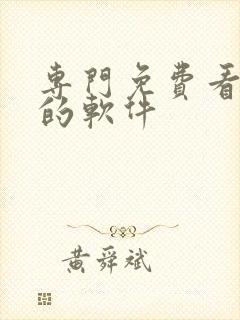 專門免費看
的軟件
黃舜斌